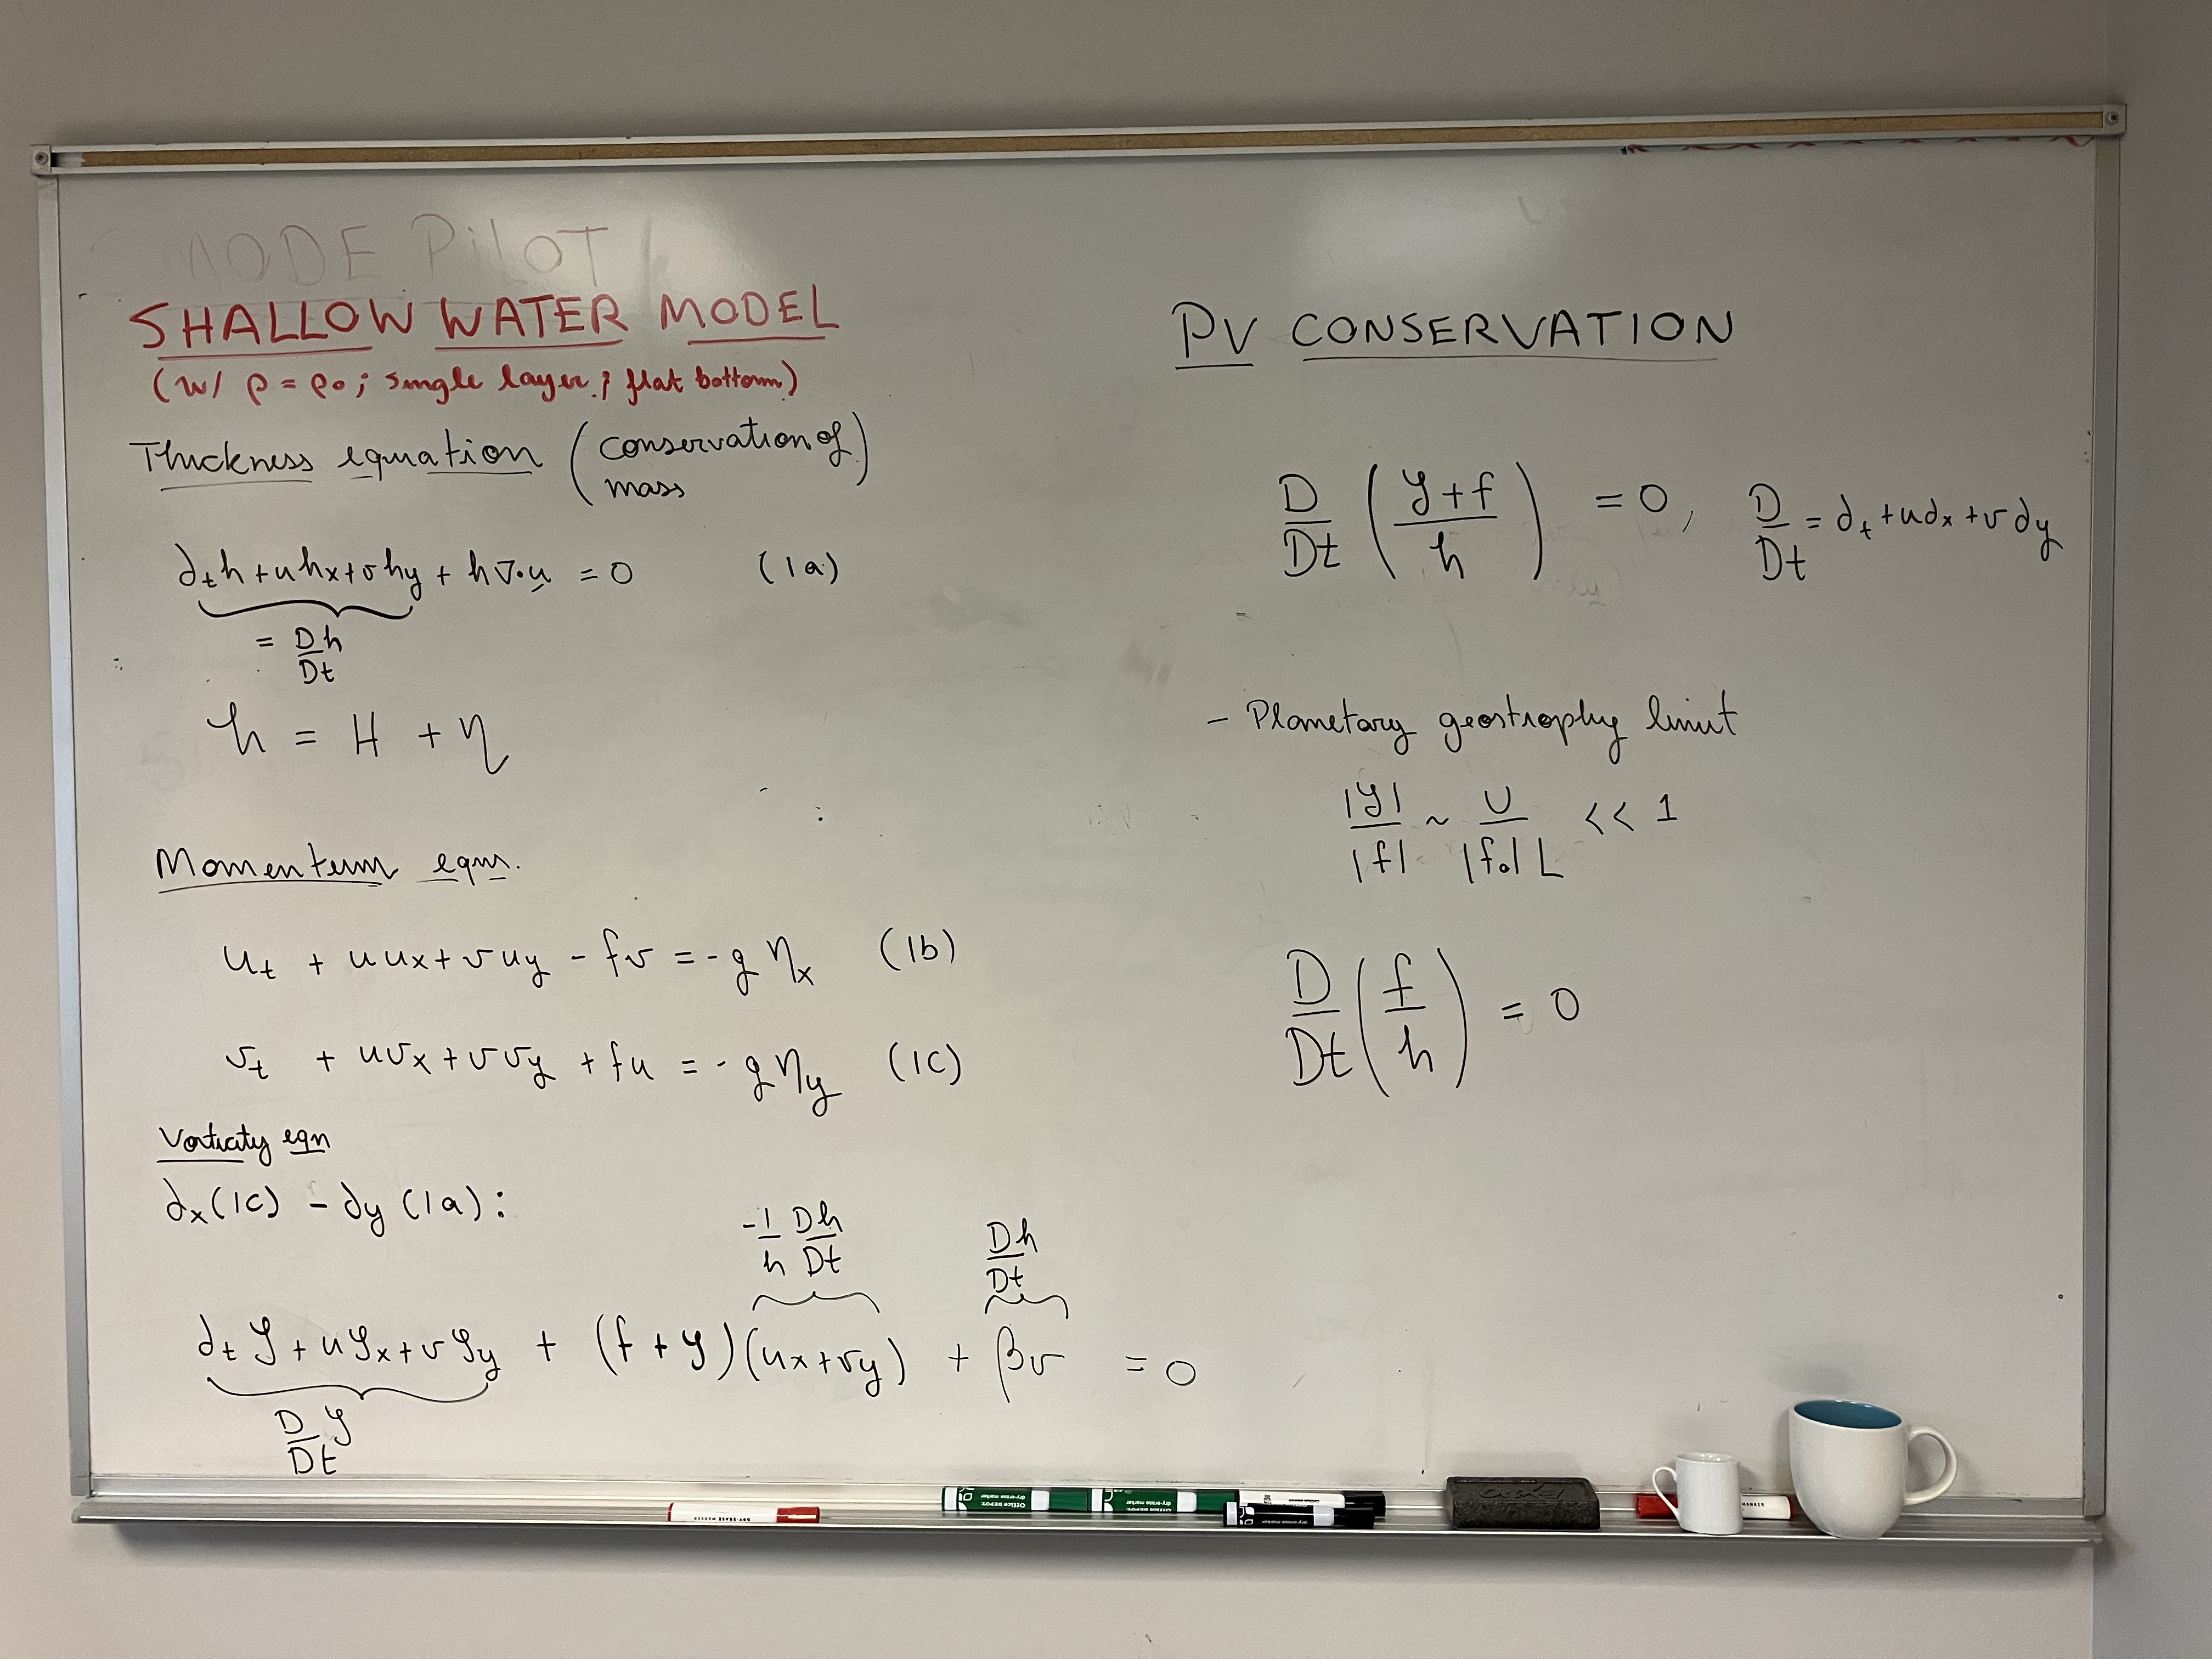 MODE PILOT
SHALLOW WATER MODEL
(w/ ρ = ρ₀; single layer; flat bottom)
Thickness equation (conservation of
mass)
∂ₜh + uhx + vhy + h∇·u = 0 (1a)
= Dh/Dt
h = H + η
Momentum eqns.
uₜ + uux + vuy - fv = -gηx (1b)
vₜ + uvx + vvy + fu = -gηy (1c)
Vorticity eqn
∂x(1c) - ∂y(1a):
-1/h Dh/Dt Dh/Dt
∂ₜζ + uζx + vζy + (f + ζ)(ux + vy) + βv = 0
D/Dt ζ
PV CONSERVATION
D/Dt ((ζ+f)/h) = 0, D/Dt = ∂ₜ + u∂x + v∂y
- Planetary geostrophy limit
|ζ|/|f| ~ U/|f₀|L << 1
D/Dt (f/h) = 0
Office DEPOT
dry-erase marker
DRY-ERASE MARKER
MARKER